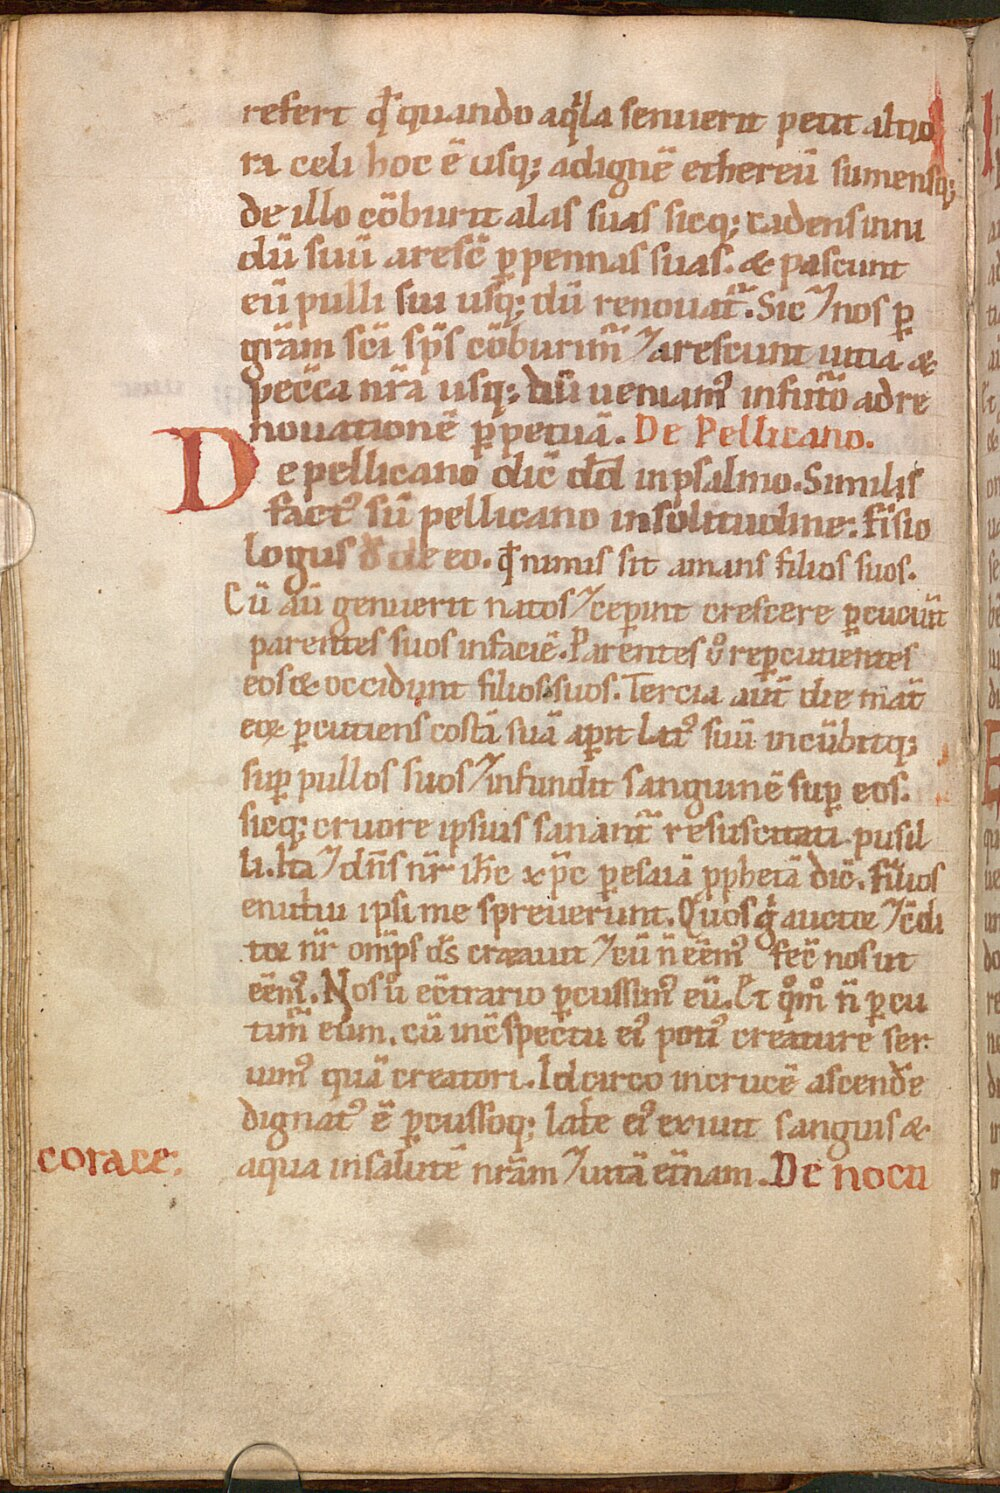 refert qđ quando aqͥla senuerit petit altio
ra celi hoc ē usq; ad ignē ethereū sumensq;
de illo cōburit alas suas sicq; cadens inni
dū suū aresc̄ ꝑ pennas suas. & pascunt
eū pulli sui usq; dū renouat᷑. Sic ⁊ nos ꝑ
grām sc̄i sp̄s cōburim᷑ ⁊ arescunt uitia &
pecc̄a nr̄a usq; dū ueniamꝰ in futūo ad re
nouationē ꝑpetuā. De Pellicano.
De pellicano dic̄ dd̄ in psalmo. Similis
factꝰ sū pellicano in solitudine: fisio
logus de eo. qđ nimis sit amans filios suos.
Cū aū genuerit natos ⁊ ceꝑint crescere ꝑcuciūt
parentes suos in faciē. Parentes ů reꝑcutientes
eos & occidunt filios suos. Tercia aūt die māt
eoꝝ ꝑcutiens costā suā aꝑit latꝰ suū incūbitq;
suꝑ pullos suos ⁊ infundit sanguinē suꝑ eos.
sicq; cruore ipsius sanant᷑ resuscitati pusil
li. Ita ⁊ dn̄s nr̄ ih̄c xp̄c ꝑ esaiā ꝓphetā dic̄. filios
enutriui ipsi me spreuerunt. Quos gͥ auctoꝛ ⁊ c̄di
toꝛ nr̄ omp̄s d̄s creauit ⁊ cū n̄ eēmꝰ fec̄ nos ut
eēmꝰ. Nos ů ec̄trario ꝑcussimꝰ eū. Et qͦmͦ n̄ ꝑcu
tim᷑ eum. cū in c̄spectu eiꝰ potiꝰ creature ser
uimꝰ quā creatori. Idcirco in crucē ascend̄e
dignatꝰ ē ꝑcussoq; lat̄e eiꝰ exiuit sanguis &
aqua in salutē nrām ⁊ uitā et̄nam. De nocti
corace: